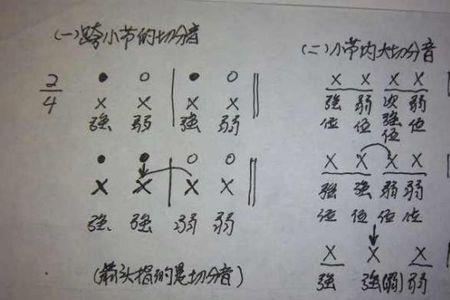 (一)跨小节的切分音
2/4
● ○ | ● ○ ||
X X | X X ||
强 弱 强 弱
● ● ○ ○
X X | X X ||
强 强 弱 弱
(箭头指的是切分音)
(二)小节内大切分音
X X X X
强 弱 次 弱
位 位 强 位
位
X X X X
强 强 弱 弱
位 位 位 位
X X X
强 强(弱) 弱